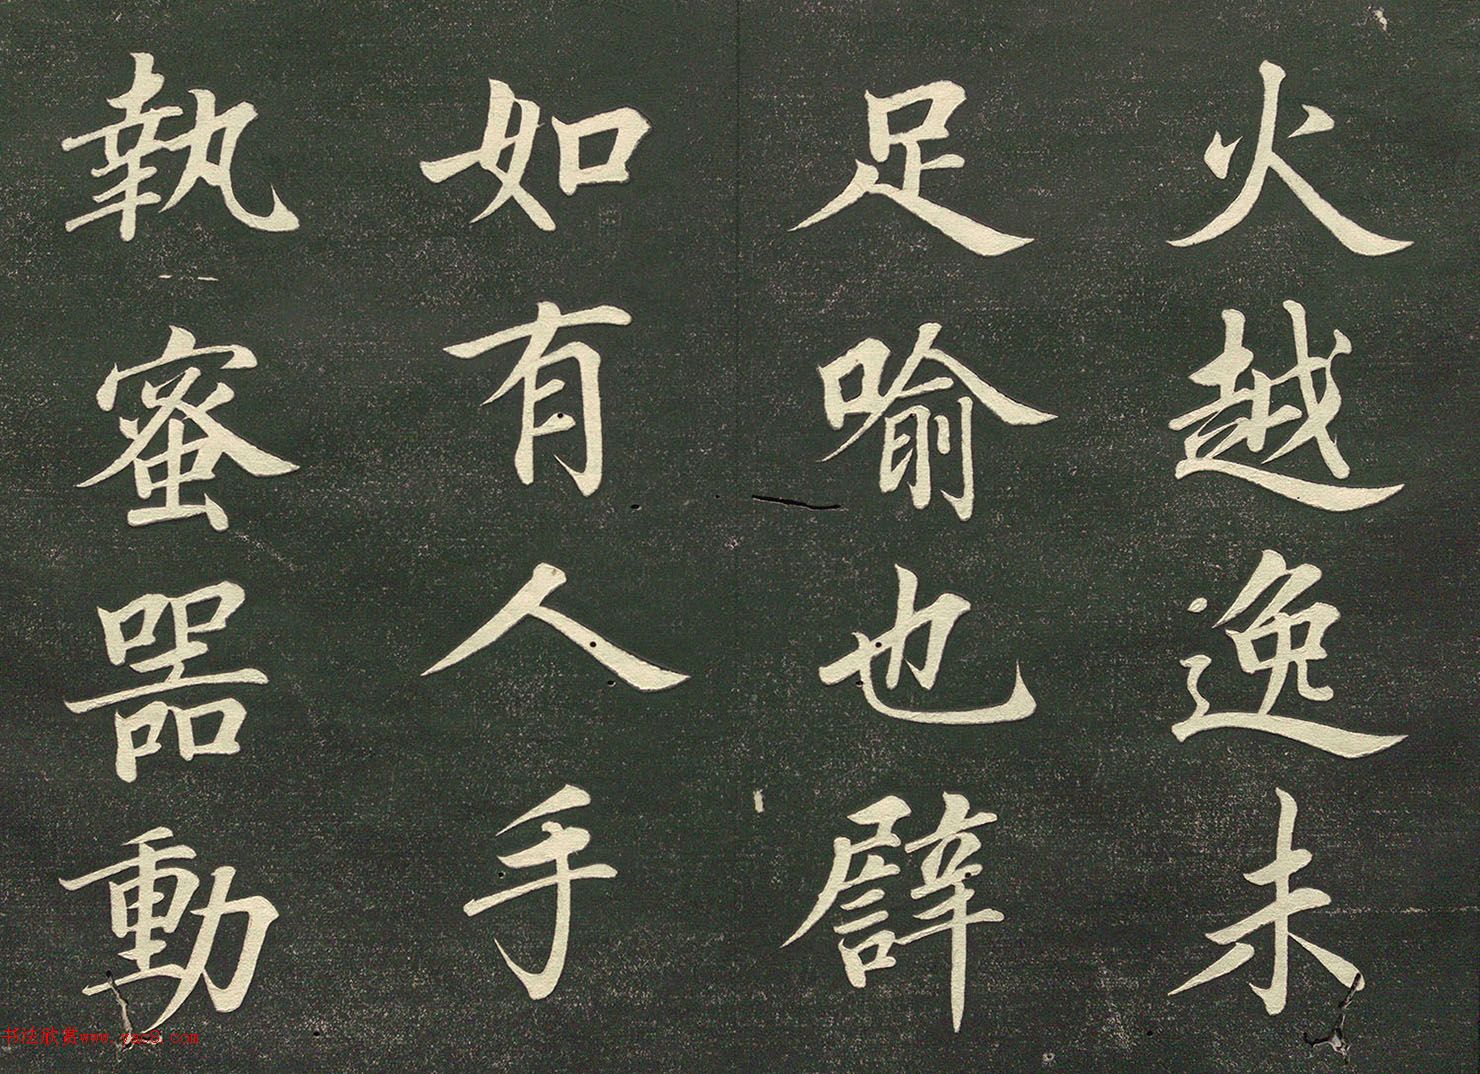 火越逸未
足喻也譬
如有人手
執蜜器動
书法欣赏www.yac8.com